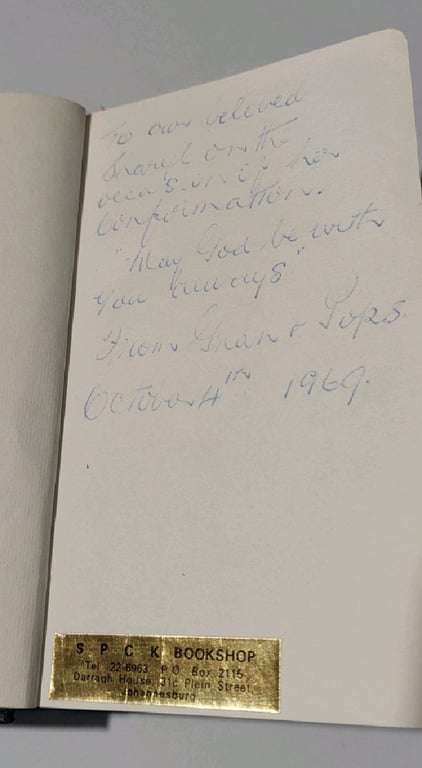 To our beloved
on the
occasion of her
Confirmation.
"May God be with
you always"
From Gran & Pops.
October 4TH 1969.
S P C K BOOKSHOP
Tel. 22-6963 P.O. Box 2115
Darragh House, 31c Plein Street
Johannesburg